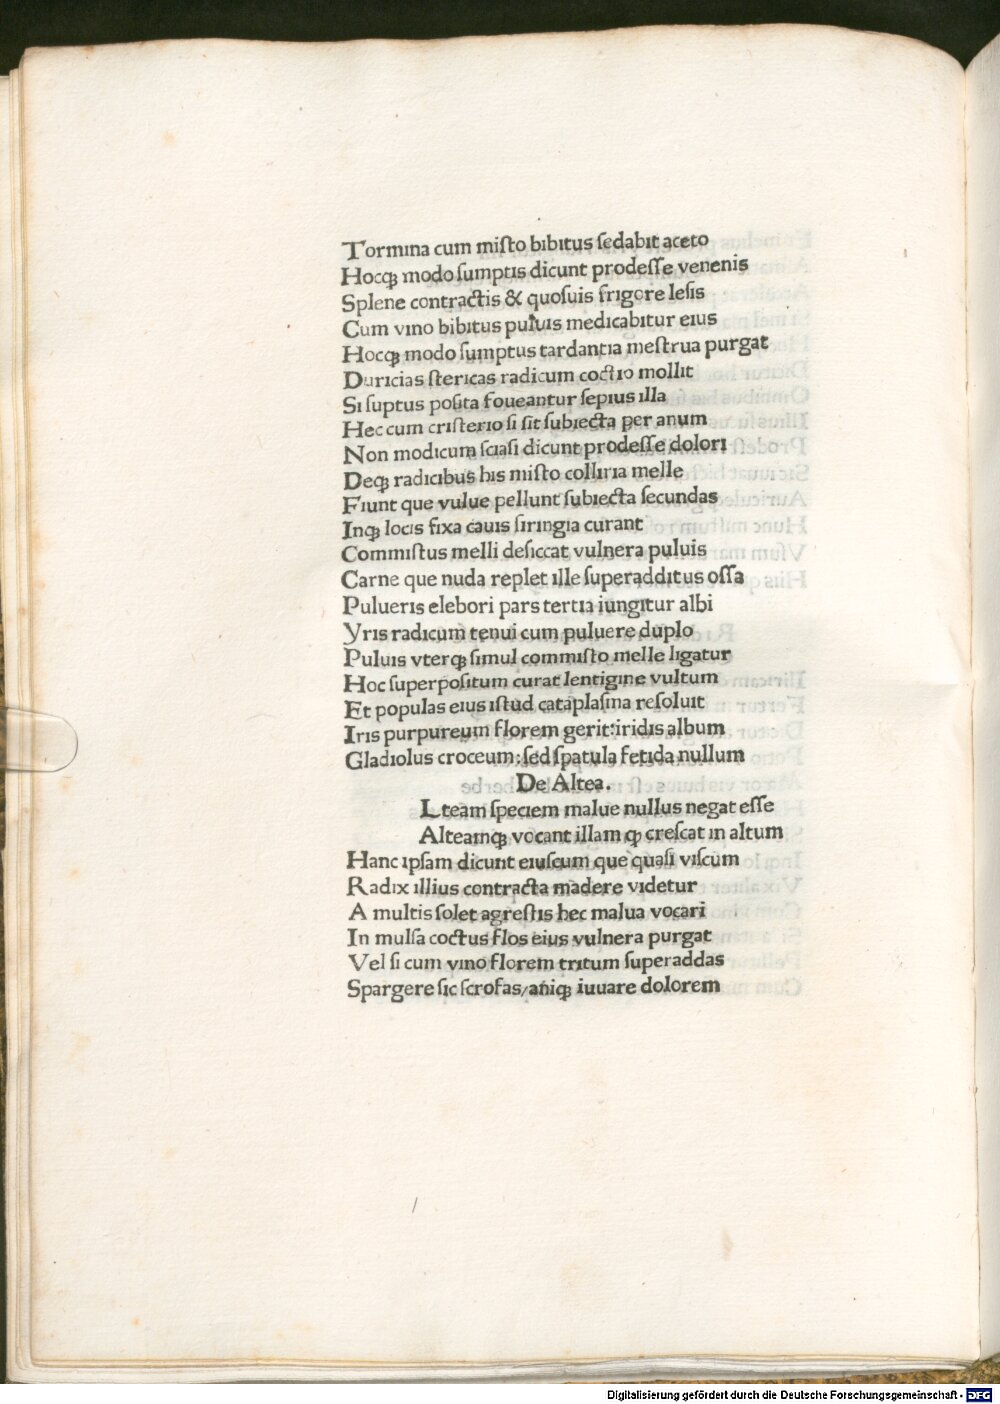 Tormina cum miſto bibitus ſedabit aceto
Hocqꝫ modo ſumptis dicunt prodeſſe venenis
Splene contractis & quoſuis frigore leſis
Cum vino bibitus puluis medicabitur eius
Hocqꝫ modo ſumptus tardantia meſtrua purgat
Duricias ſtericas radicum coctio mollit
Si ſuptus poſita foueantur ſepius illa
Hec cum criſterio ſi ſit ſubiecta per anum
Non modicum ſciaſi dicunt prodeſſe dolori
Deqꝫ radicibus his miſto colliria melle
Fiunt que vulue pellunt ſubiecta ſecundas
Inqꝫ locis fixa cauis ſiringia curant
Commiſtus melli deſiccat vulnera puluis
Carne que nuda replet ille ſuperadditus oſſa
Pulueris elebori pars tertia iungitur albi
Yris radicum tenui cum puluere duplo
Puluis vterqꝫ ſimul commiſto melle ligatur
Hoc ſuperpoſitum curat lentigine vultum
Et populas eius iſtud cataplaſma reſoluit
Iris purpureum florem gerit:iridis album
Gladiolus croceum:ſed ſpatula fetida nullum
De Altea.
Lteam ſpeciem malue nullus negat eſſe
Alteamqꝫ vocant illam ꝙ creſcat in altum
Hanc ipſam dicunt eiuſcum que quaſi viſcum
Radix illius contracta madere videtur
A multis ſolet agreſtis hec malua vocari
In mulſa coctus flos eius vulnera purgat
Vel ſi cum vino florem tritum ſuperaddas
Spargere ſic ſcrofas/aniqꝫ iuuare dolorem
Digitalisierung gefördert durch die Deutsche Forschungsgemeinschaft - DFG